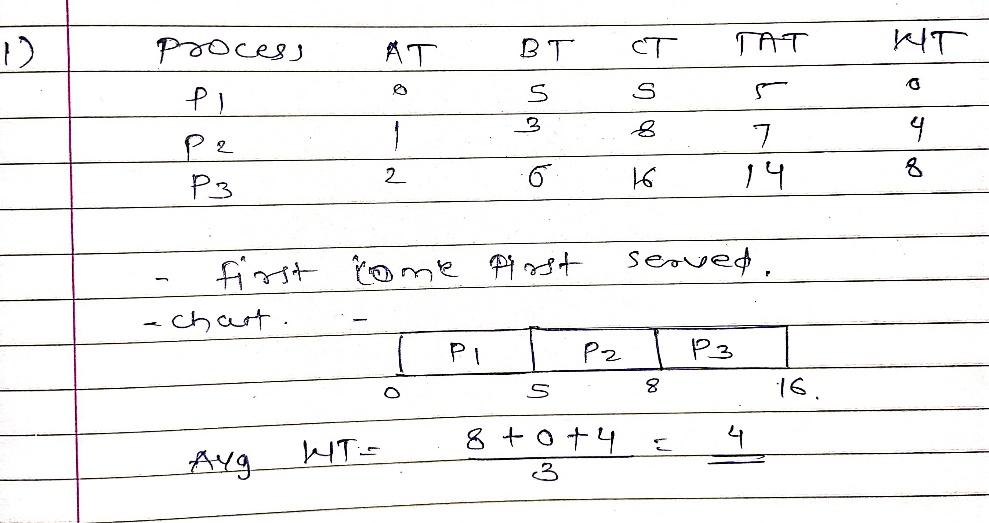 1) Process AT BT CT TAT WT
P1 0 5 5 5 0
P2 1 3 8 7 4
P3 2 6 16 14 8
- first come first served.
- chart. -
P1 P2 P3
0 5 8 16.
Avg WT = 8 + 0 + 4 = 4
3